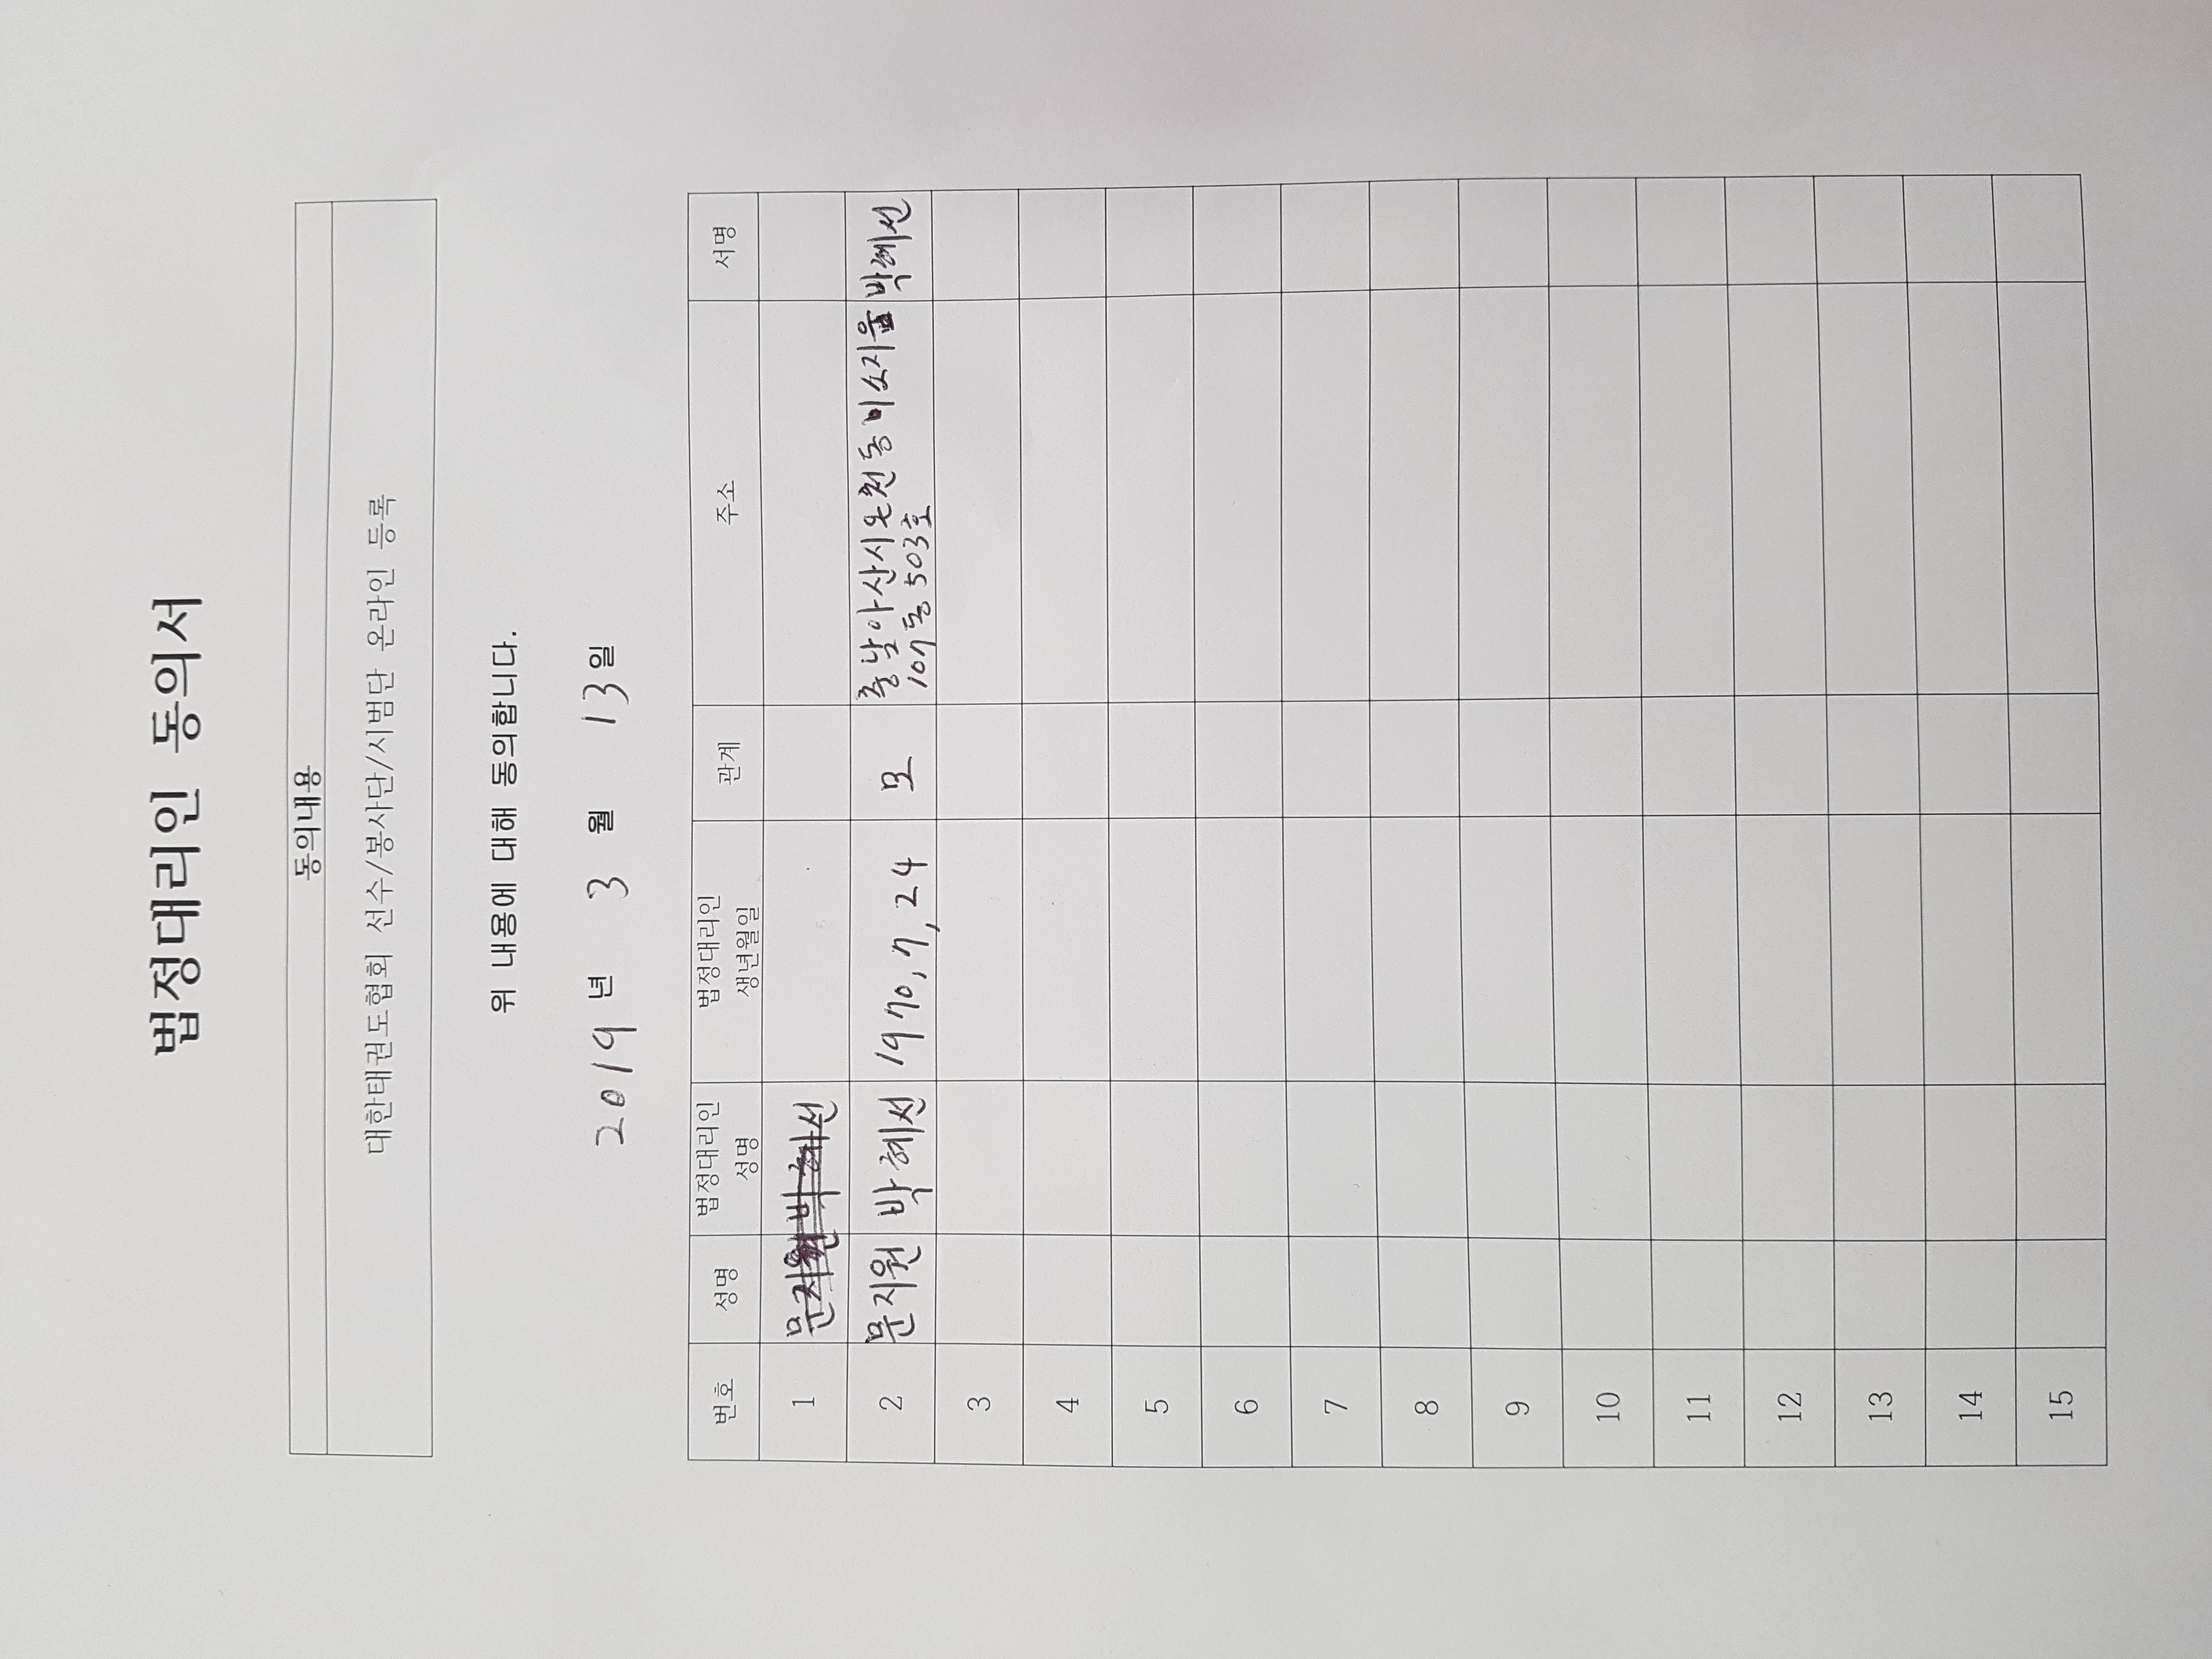 법정대리인 동의서
동의내용
대한태권도협회 선수/봉사단/시범단 온라인 등록
위 내용에 대해 동의합니다.
2019 년 3 월 13 일
번호 성명 법정대리인 성명 법정대리인 생년월일 관계 주소 서명
1 문지원 박혜선
2 문지원 박혜선 1970, 7, 24 모 충남 아산시 온천동 미소지움 박혜선
107동 503호
3
4
5
6
7
8
9
10
11
12
13
14
15